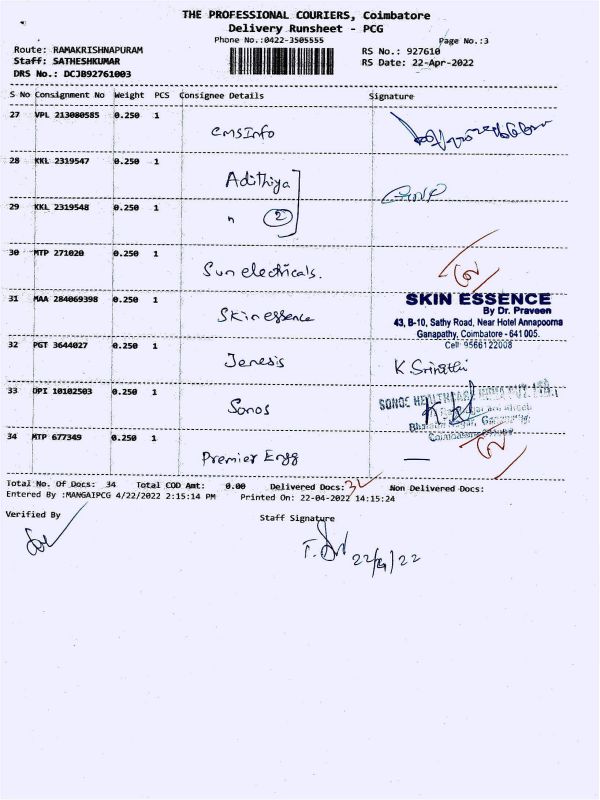 THE PROFESSIONAL COURIERS, Coimbatore
Delivery Runsheet - PCG
Phone No.:0422-3505555
Page No.:3
Route: RAMAKRISHNAPURAM
RS No.: 927610
Staff: SATHESHKUMAR
RS Date: 22-Apr-2022
DRS No.: DCJ892761003
S No Consignment No Weight PCS Consignee Details Signature
27 VPL 213080585 0.250 1
CmsInfo
28 KKL 2319547 0.250 1
Adithiya
29 KKL 2319548 0.250 1
" 2
30 MTP 271020 0.250 1
Sun electricals.
31 MAA 284069398 0.250 1
Skin essence
SKIN ESSENCE
By Dr. Praveen
43, B-10, Sathy Road, Near Hotel Annapoorna
Ganapathy, Coimbatore - 641 005.
Cell: 9566122008
32 PGT 3644027 0.250 1
Jenesis
K Srinathi
33 OPI 10102503 0.250 1
Sonos
34 MTP 677349 0.250 1
Premier Engg
Total No. Of Docs: 34 Total COD Amt: 0.00 Delivered Docs: 32 Non Delivered Docs:
Entered By :MANGAIPCG 4/22/2022 2:15:14 PM Printed On: 22-04-2022 14:15:24
Verified By
Staff Signature
22/4/22